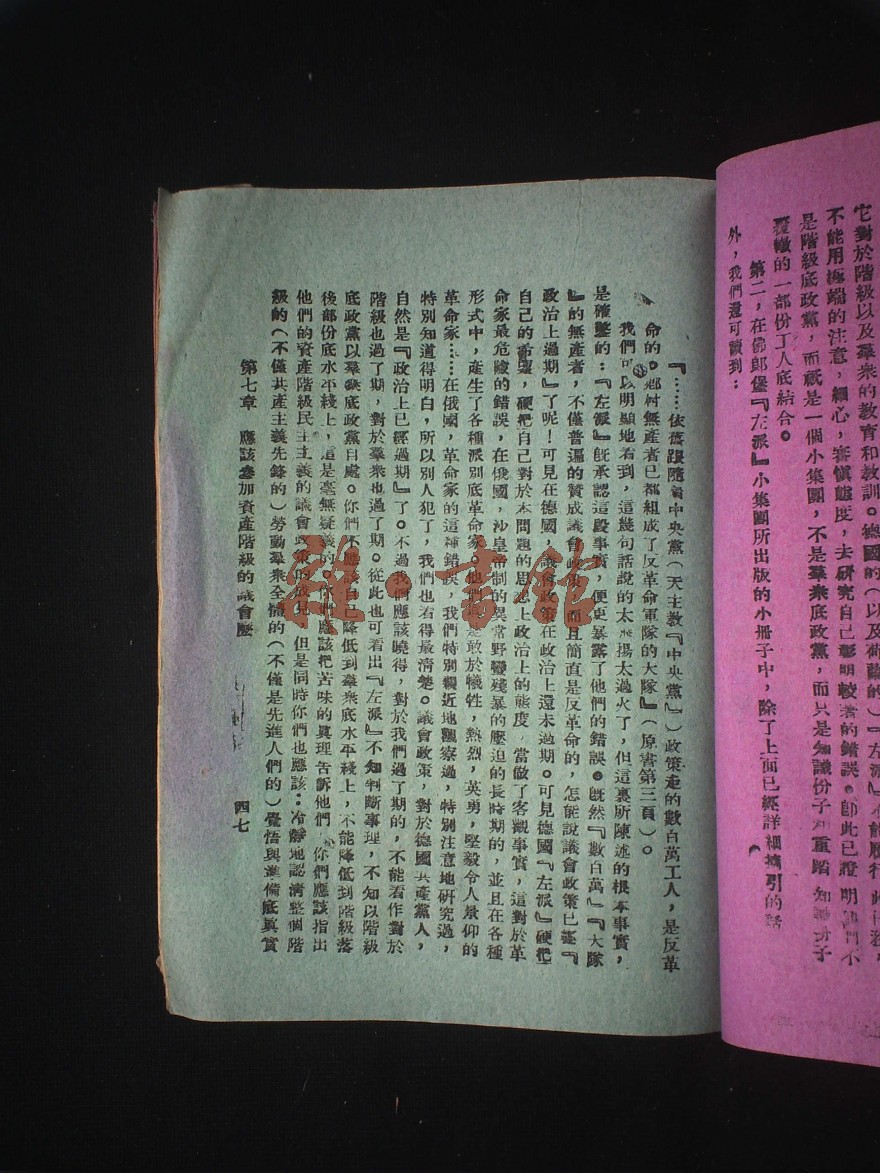 它對於階級以及羣衆的教育和教訓。德國的（以及荷蘭的）『左派』
不能用極端的注意，細心，審慎態度，去研究自己彰明較著的錯誤。卽此已證明他們不
是階級底政黨，而祇是一個小集團，不是羣衆底政黨，而只是知識份子和重踏知識份子
覆轍的一部份工人底結合。
第二，在佛郎堡『左派』小集團所出版的小冊子中，除了上面已經詳細摘引的話
外，我們還可讀到：
『……依舊跟隨着中央黨（天主教『中央黨』）政策走的數百萬工人，是反革
命的。鄉村無產者已都組成了反革命軍隊的大隊』（原書第三頁）。
我們可以明顯地看到，這幾句話說的太飛揚太過火了，但這裏所陳述的根本事實，
是確鑿的：『左派』旣承認這段事實，便更暴露了他們的錯誤。旣然『數百萬』『大隊
』的無產者，不僅普遍的贊成議會政策，而且簡直是反革命的，怎能說議會政策已經『
政治上過期』了呢！可見在德國，議會政策在政治上還未過期。可見德國『左派』硬把
自己的希望，硬把自己對於本問題的思想上政治上的態度，當做了客觀事實，這對於革
命家最危險的錯誤，在俄國，沙皇帝制的異常野蠻殘暴的壓迫的長時期的，並且在各種
形式中，產生了各種派別底革命家，他們具是敢於犧牲，熱烈，英勇，堅毅令人景仰的
革命家……在俄國，革命家的這種錯誤，我們特別親近地觀察過，特別注意地研究過，
特別知道得明白，所以別人犯了，我們也看得最淸楚。議會政策，對於德國共產黨人，
自然是『政治上已經過期』了。不過我們應該曉得，對於我們過了期的，不能看作對於
階級也過了期，對於羣衆也過了期。從此也可看出『左派』不知判斷事理，不知以階級
底政黨以羣衆底政黨自處。你們不應該自己降低到羣衆底水平綫上，不能降低到階級落
後部份底水平綫上，這是毫無疑義的。你們應該把苦味的眞理告訴他們，你們應該指出
他們的資產階級民主主義的議會政策的成見，但是同時你們也應該：冷靜地認淸整個階
級的（不僅共產主義先鋒的）勞動羣衆全體的（不僅是先進人們的）覺悟與準備底眞實
第七章　應該參加資產階級的議會麽
四七
雜·書館